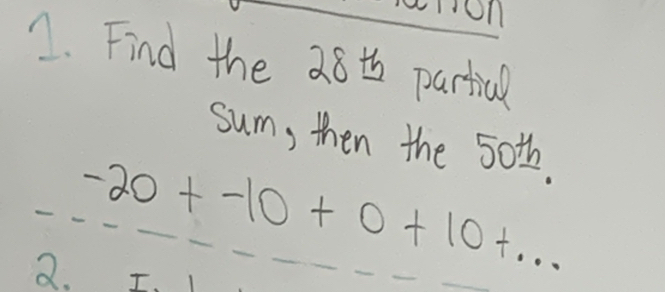 1. Find the 28th partial
sum, then the 50th.
-20 + -10 + 0 + 10 +...
2.